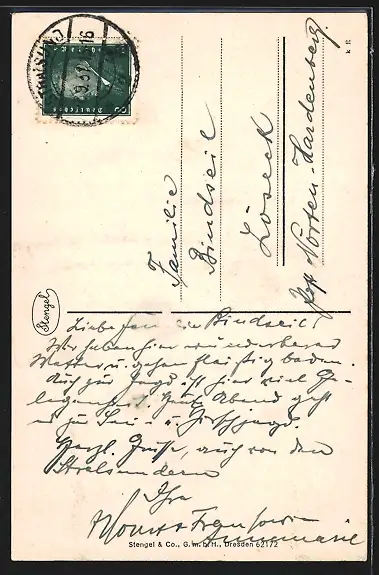 Familie
Bindseil
Löseck
Post Nörten-Hardenberg.
k R
Stengel
Liebe Familie Bindseil!
Wir haben hier wunderbares
Wetter u. gehen fleißig baden.
Auch zur Jagd ist hier viel Ge-
legenheit. Heute Abend geht
es zur Sau- u. Hirschjagd.
Herzl. Grüße, auch von den
Stralsundern
Ihre
Annemarie
Stengel & Co., G. m. b. H., Dresden 62172